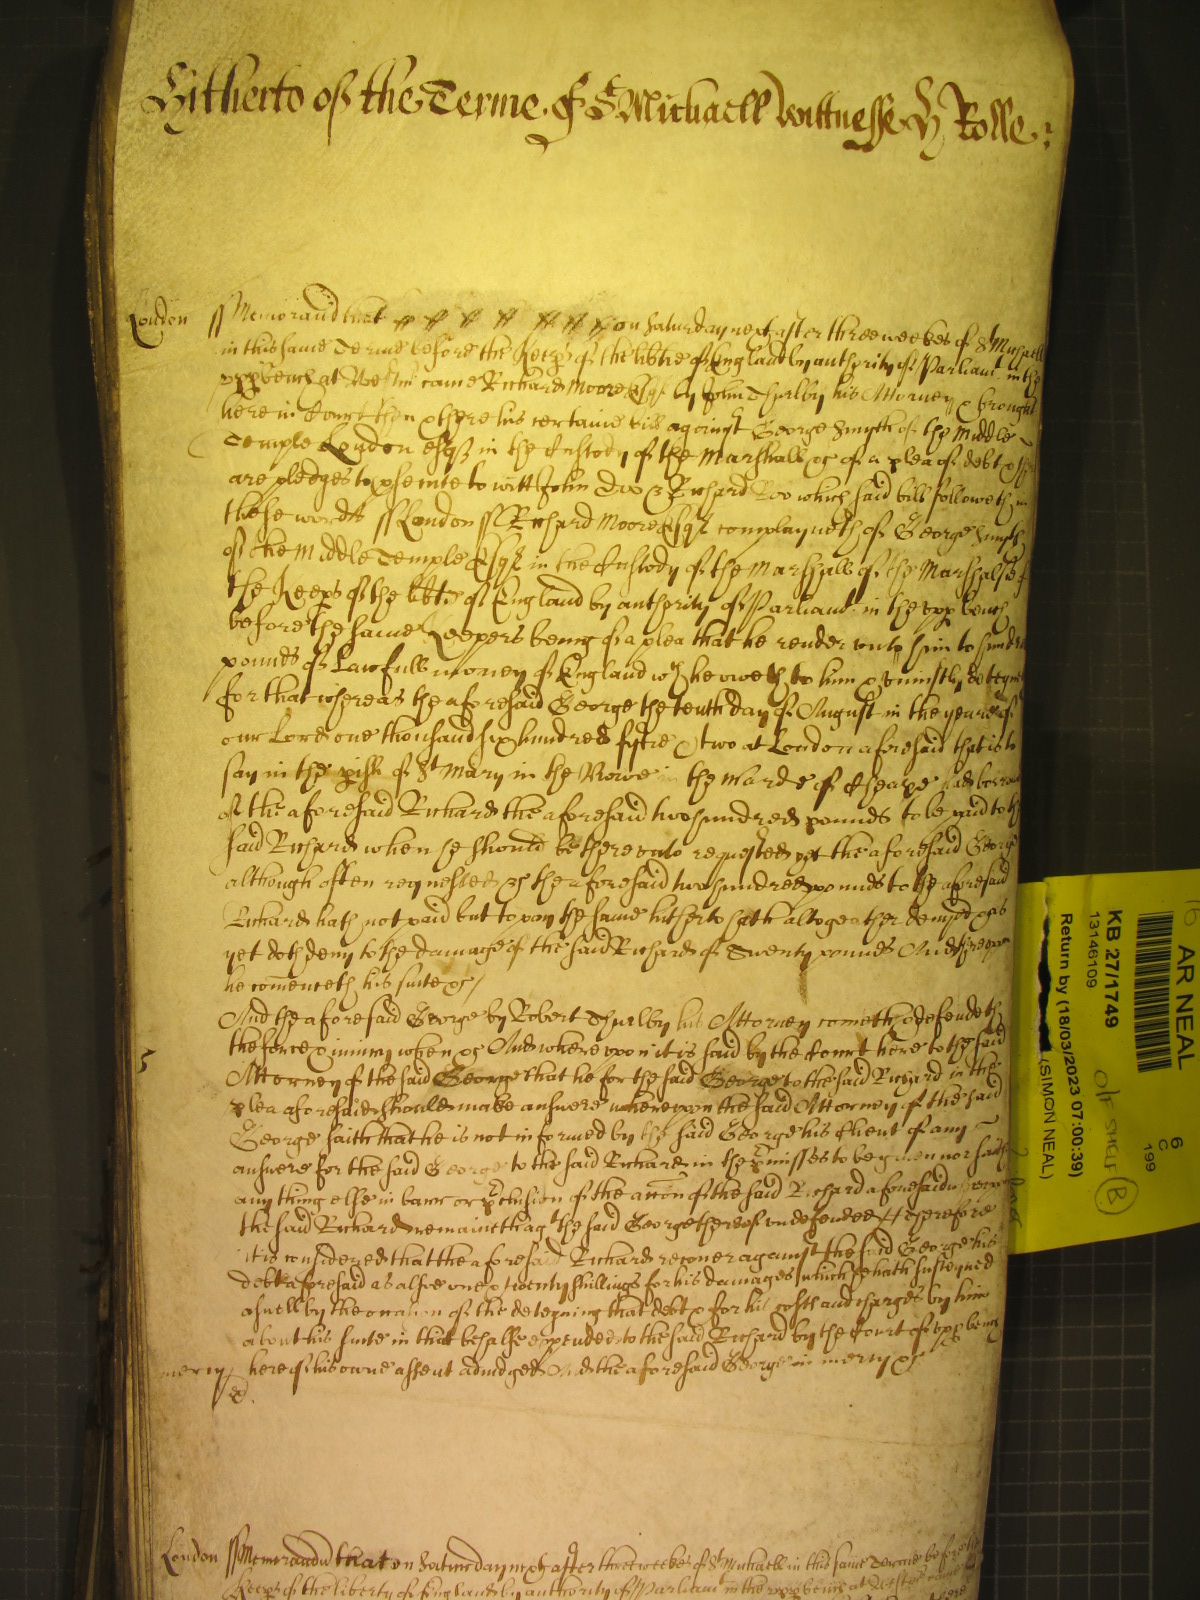 Hitherto of the Terme of St Michaell Wittnesse H Rolle
London ss Memorand that on Saturday next after three weekes of St Michaell
in this same Terme before the Keeps of the libtie of England by authority of Parliamt in the
upp bench at Westm came Richard Moore Esqr by John Thurlby his Attorney & brought
here in Court then & there his certaine bill against George Smyth of the Middle
Temple London esqr in the Custody of the Marshall &c of a plea of debt &
are pledges to psecute to witt John Doo & Richard Roo which said bill followeth in
these words ss London ss Richard Moore Esqr complayneth of George Smyth
of the Middle Temple Esqr in the Custody of the Marshall of the Marshalsie of
the Keeps of the libtie of England by authority of Parliamt in the upp bench
before the same Keepers being of a plea that he render unto him two hundred
pounds of Lawfull money of England wch he oweth to him & uniustly deteyneth
for that whereas the aforesaid George the tenth day of August in the yeare of
our Lord one thousand six hundred fiftie & two at London aforesaid that is to
say in the pish of St Mary in the Bowe in the Warde of Cheape had borrowed
of the aforesaid Richard the aforesaid two hundred pounds to be paid to the
said Richard when he should be thereunto requested yet the aforesaid George
although often requested &c the aforesaid two hundred pounds to the aforesaid
Richard hath not paid but to pay the same hitherto hath altogeather denyed & as
yet doth deny to the damage of the said Richard of Twenty pounds And thereupon
he comenceth his suite &c
And the aforesaid George by Robert Thurlby his Attorney cometh & defendeth
the force & iniury when &c And whereupon it is said by the Court here to the said
5
Attorney of the said George that he for the said George to the said Richard in the
plea aforesaid should make answere whereupon the said Attorney of the said
George saith that he is not informed by the said George his Client of any
answere for the said George to the said Richard in the pmisses to be given nor saith
any thing else in barr or pclusion of the accon of the said Richard aforesaid whereupon
the said Richard remaineth agt the said George thereof undefended Therefore
it is considered that the aforesaid Richard recover against the said George his
debt aforesaid as also one & twenty shillings for his damages which he hath susteyned
aswell by the occasion of the deteyning that debt & for his costs and charges by him
about his suite in that behalfe expended to the said Richard by the Court of upp bench
mercy here of his owne assent adiudged And the aforesaid George in mercy &c
London ss Memorandu that on Saturday next after three weekes of St Michaell in this same Terme before the
Keeps of the liberty of England by authority of Parliamt in the upp bench at Westm came
AR NEAL
KB 27/1749
13146109
Return by (18/03/2023 07:00:39)
(SIMON NEAL)
O/F SHELF B
6
C
199